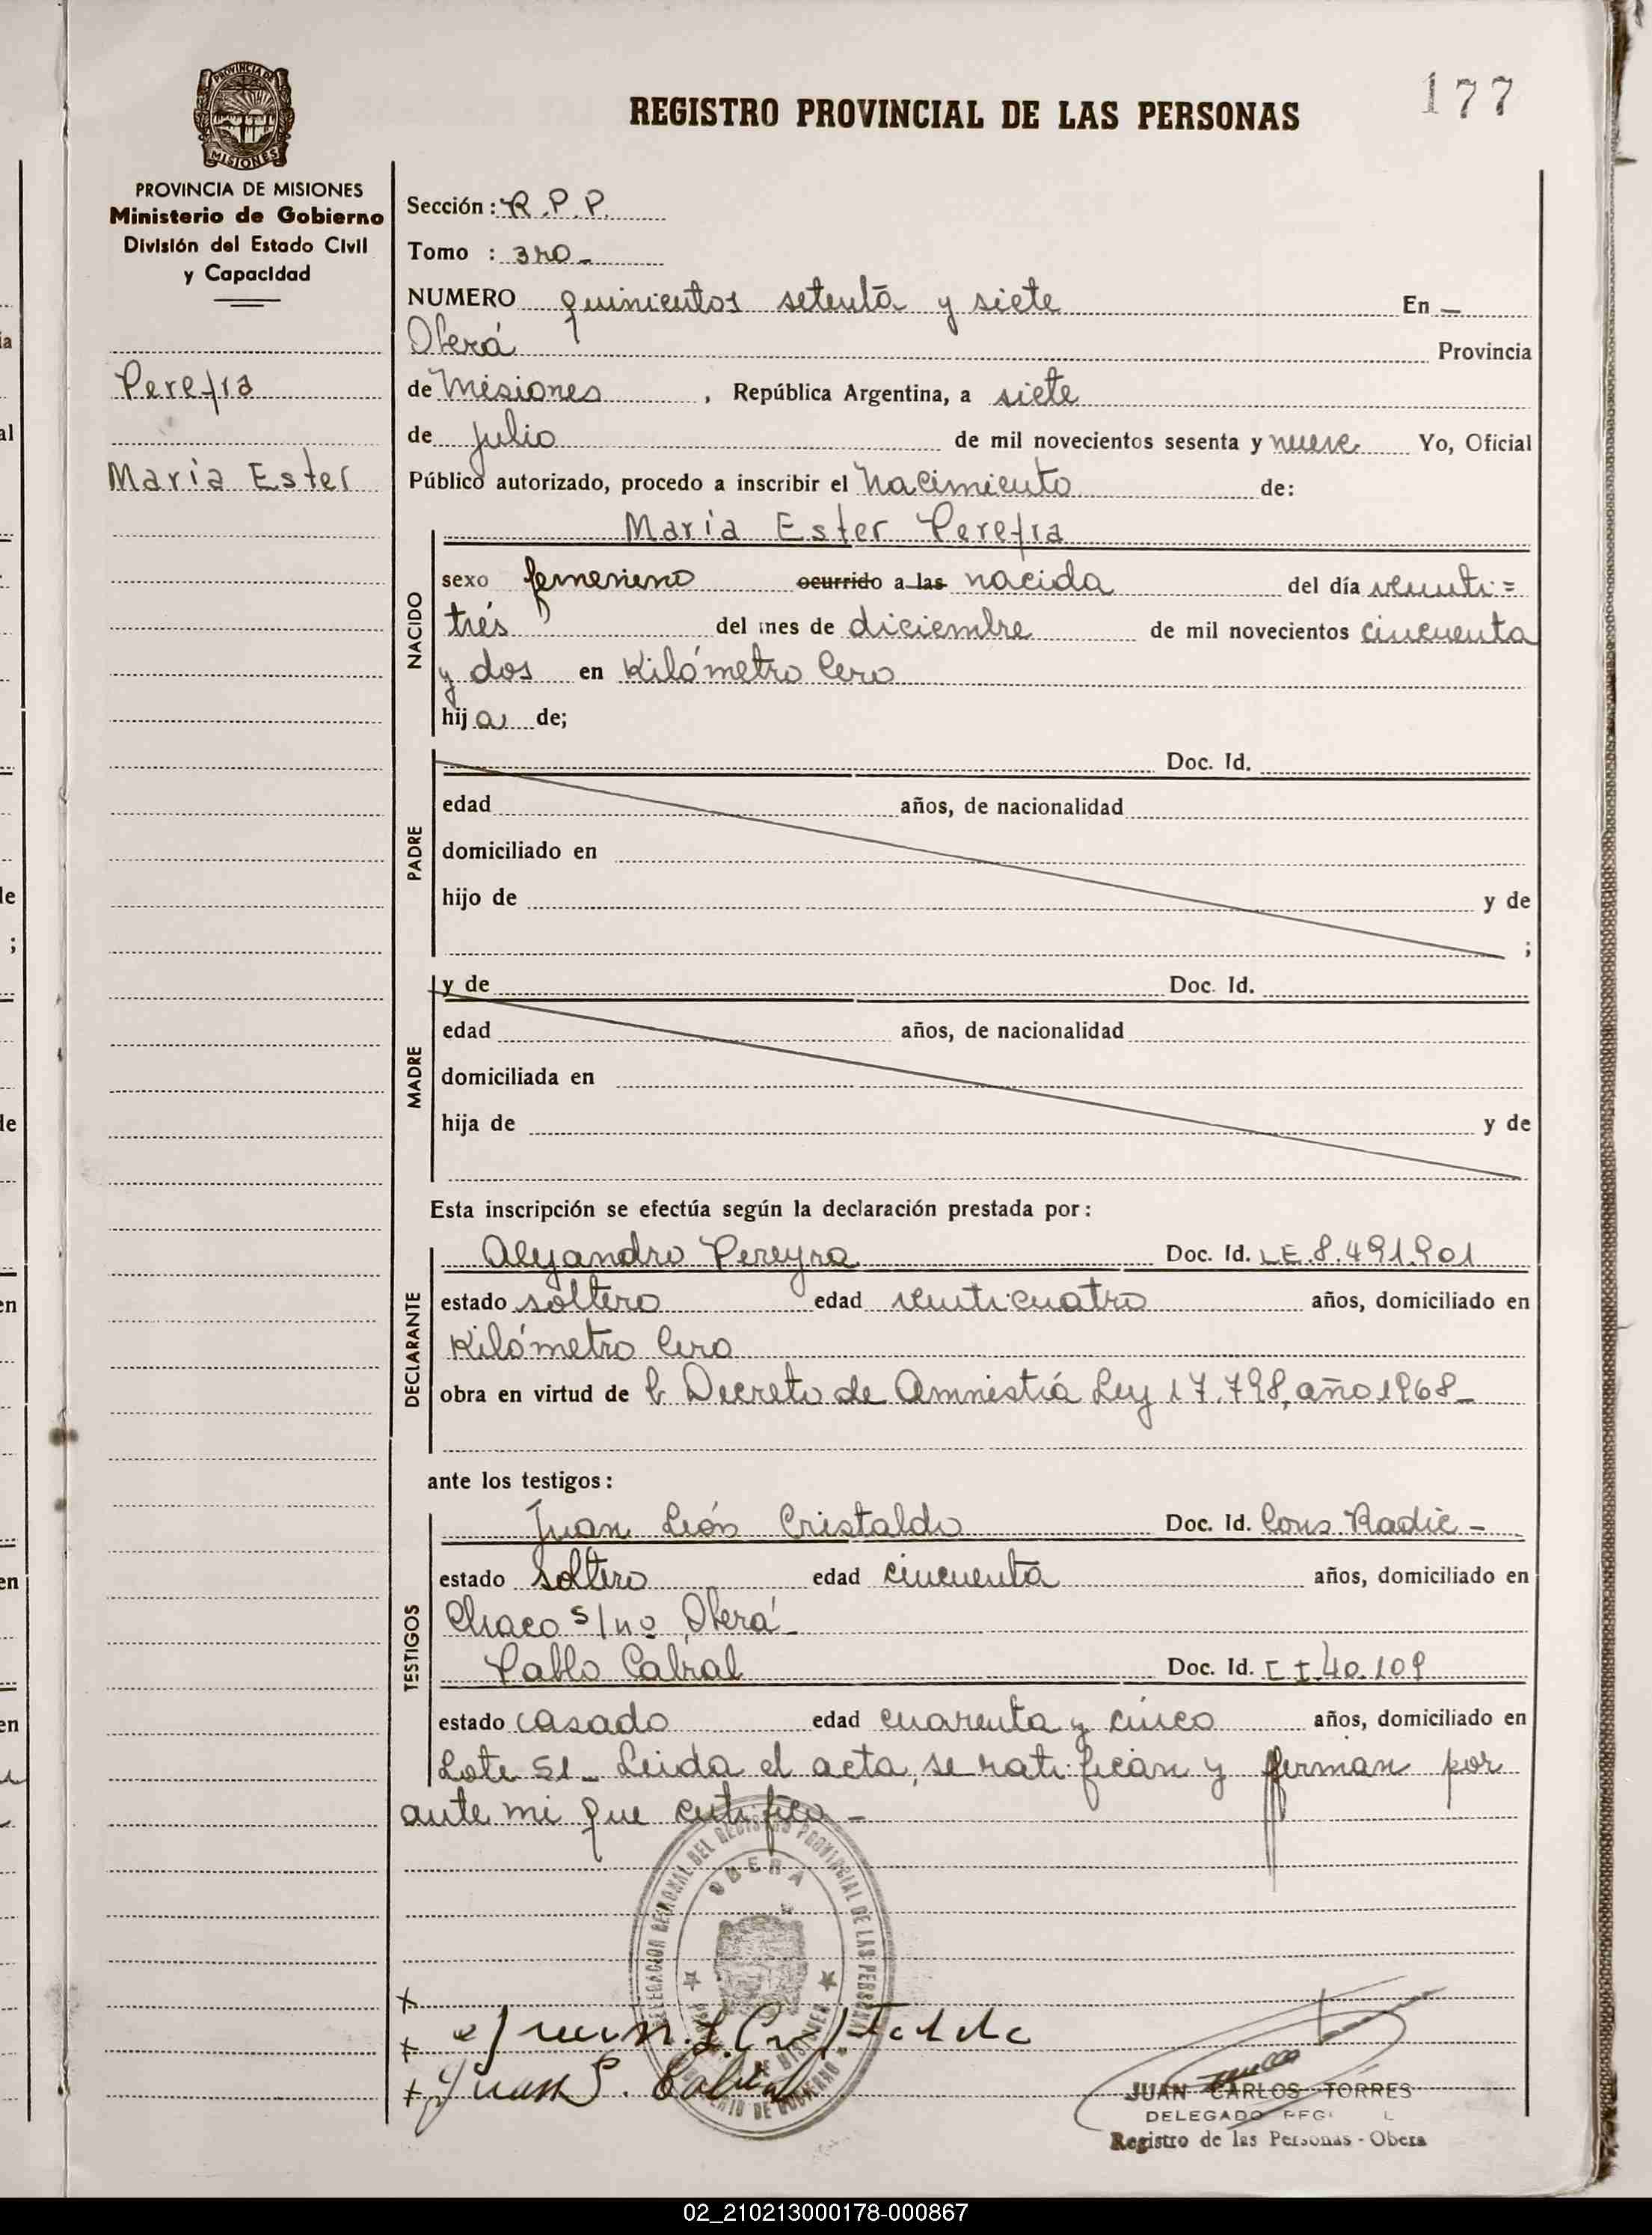 177
REGISTRO PROVINCIAL DE LAS PERSONAS
PROVINCIA DE
MISIONES
PROVINCIA DE MISIONES
Ministerio de Gobierno
División del Estado Civil
y Capacidad
Pereyra
María Ester
Sección: R.P.P.
Tomo : 3ro-
NUMERO quinientos setenta y siete En -
Oberá Provincia
de Misiones, República Argentina, a siete
de julio de mil novecientos sesenta y nueve Yo, Oficial
Público autorizado, procedo a inscribir el nacimiento de:
María Ester Pereyra
NACIDO
sexo femenino ocurrido a las nacida del día veinti=
trés del mes de diciembre de mil novecientos cincuenta
y dos en Kilómetro Cero
hija de;
PADRE
Doc. Id.
edad años, de nacionalidad
domiciliado en
hijo de y de
;
MADRE
y de Doc. Id.
edad años, de nacionalidad
domiciliada en
hija de y de
Esta inscripción se efectúa según la declaración prestada por:
DECLARANTE
Alejandro Pereyra Doc. Id. L.E. 8.491.901
estado soltero edad veinticuatro años, domiciliado en
Kilómetro Cero
obra en virtud de Decreto de Amnistía Ley 17.798, año 1968-
ante los testigos:
TESTIGOS
Juan León Cristaldo Doc. Id. Cons. Radic-
estado soltero edad cincuenta años, domiciliado en
Chaco s/nº Oberá-
Pablo Cabral Doc. Id. C.I. 40.109
estado casado edad cuarenta y cinco años, domiciliado en
Lote 51- Leida el acta, se ratifican y firman por
ante mi que certifico-
DELEGACION DEL REGISTRO PROVINCIAL DE LAS PERSONAS
OBERA
MINISTERIO DE GOBIERNO
Juan L. Cristaldo
Juan P. Cabral
JUAN CARLOS TORRES
DELEGADO
Registro de las Personas - Obera
02_210213000178-000867